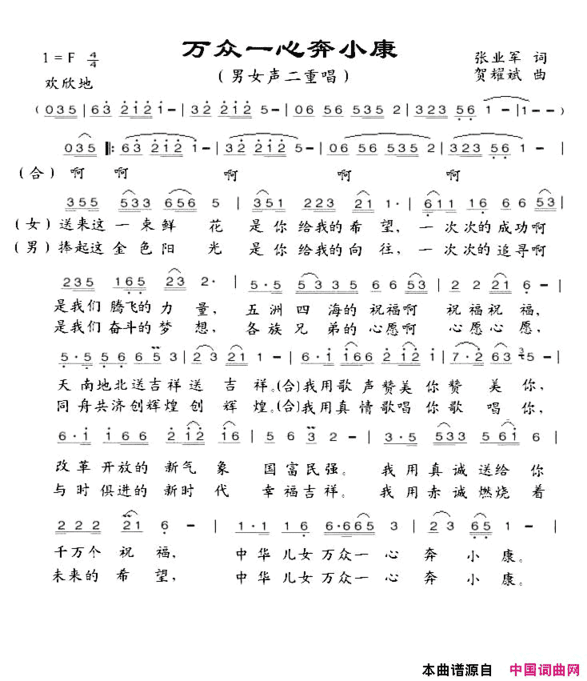 万众一心奔小康
1=F 4/4
(男女声二重唱)
张业军 词
欢欣地
贺耀斌 曲
(035 | 63 2121 1- | 32 212 5- | 06 56 535 2 | 323 56 1- | 1--)
035 |: 63 2121 1- | 32 212 5- | 06 56 535 2 | 323 56 1- |
(合) 啊 啊 啊 啊 啊
355 533 656 5 | 351 223 21 1· | 611 16 66 53 |
(女) 送来这一束鲜 花 是你给我的希望, 一次次的成功啊
(男) 捧起这金色阳 光 是你给我的向往, 一次次的追寻啊
235 165 23 2· | 5·5 5335 66 53 | 22 21 6- |
是我们腾飞的力 量, 五洲四海的祝福啊 祝福祝福,
是我们奋斗的梦 想, 各族兄弟的心愿啊 心愿心愿,
天南地北送吉祥送 吉祥。(合)我用歌声赞美你赞 美你,
同舟共济创辉煌创 辉煌。(合)我用真情歌唱你歌 唱你,
6·1 166 212 16 | 55 32 2- | 3·5 533 561 6 |
改革开放的新气象 国富民强。 我用真诚送给你
与时俱进的新时代 幸福吉祥。 我用赤诚燃烧着
222 21 6 - | 1·1 16 6·665 | 23 65 5 - |
千万个祝福, 中华儿女万众一心奔小康。
未来的希望, 中华儿女万众一心奔小康。
本曲谱源自 中国词曲网